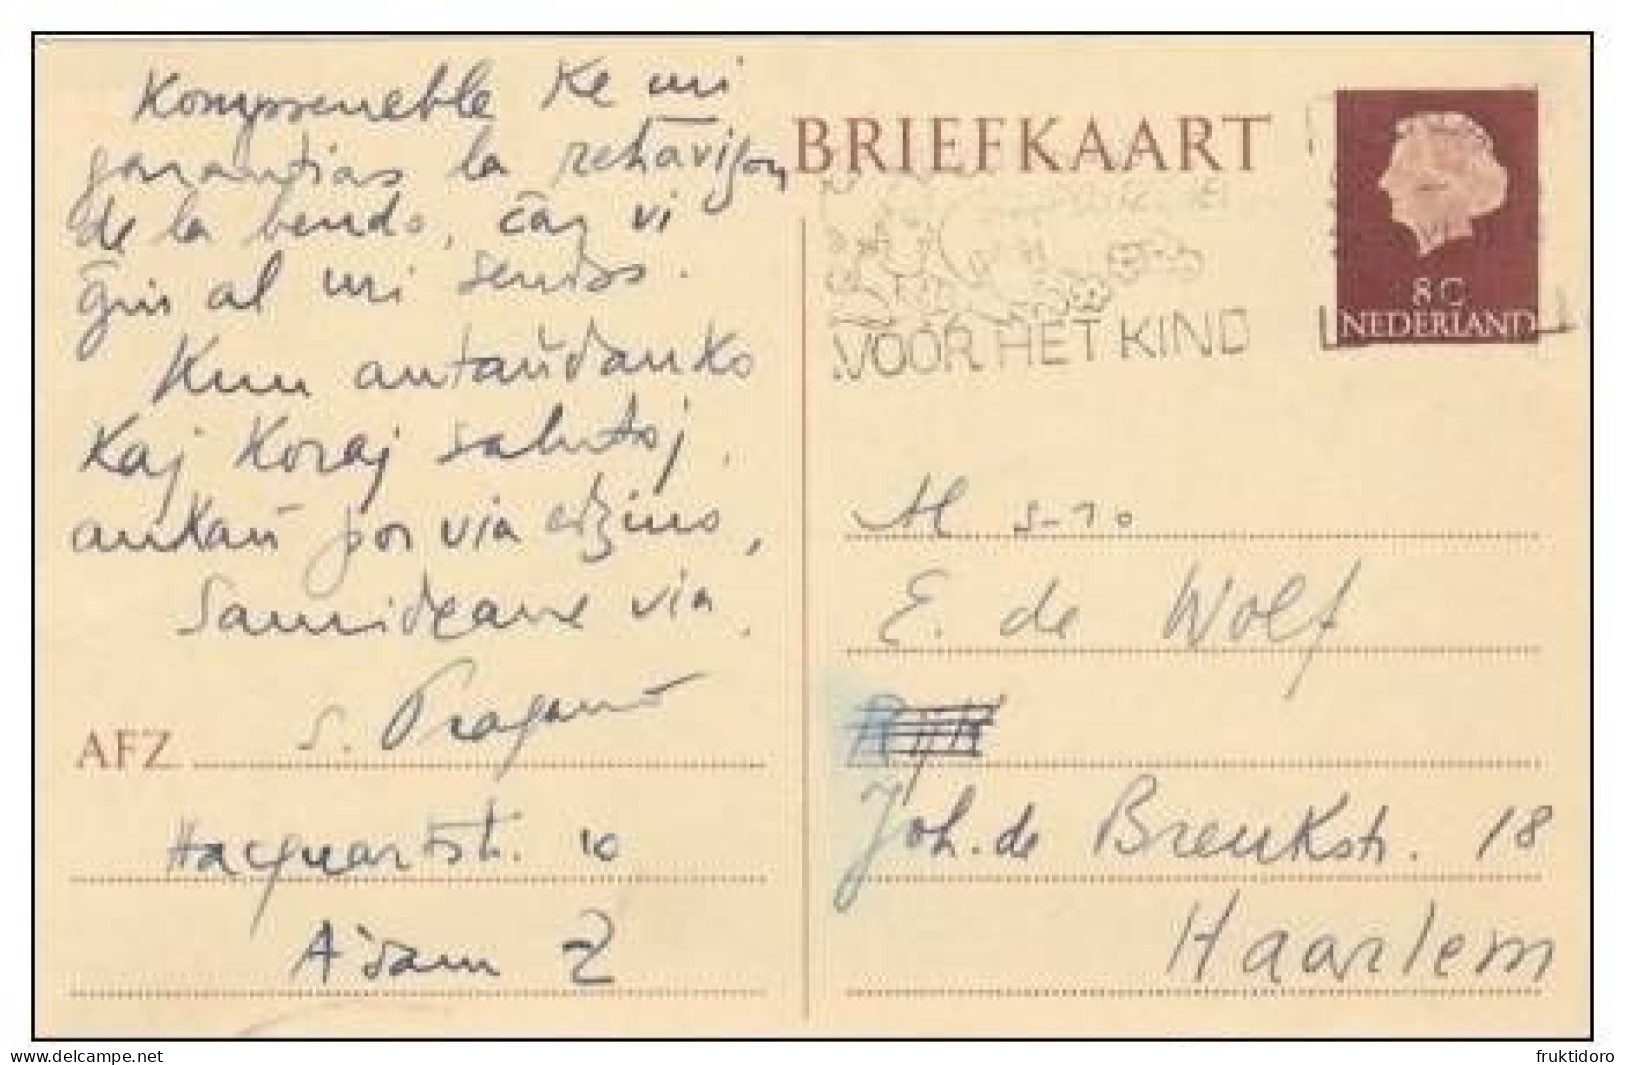 Kompreneble ke mi
garantias la rehavigon
de la bendo, ĉar vi
ĝin al mi sendos.
Kun antaŭdanko
kaj koraj salutoj,
ankaŭ por via edzino,
Samideane via,
S. Pragano
AFZ.
Hacquartstr. 10
A'dam Z
BRIEFKAART
8 C
NEDERLAND
VOOR HET KIND
E. de Wolf
Joh. de Breukstr. 18
Haarlem
delcampe.net
fruktidoro